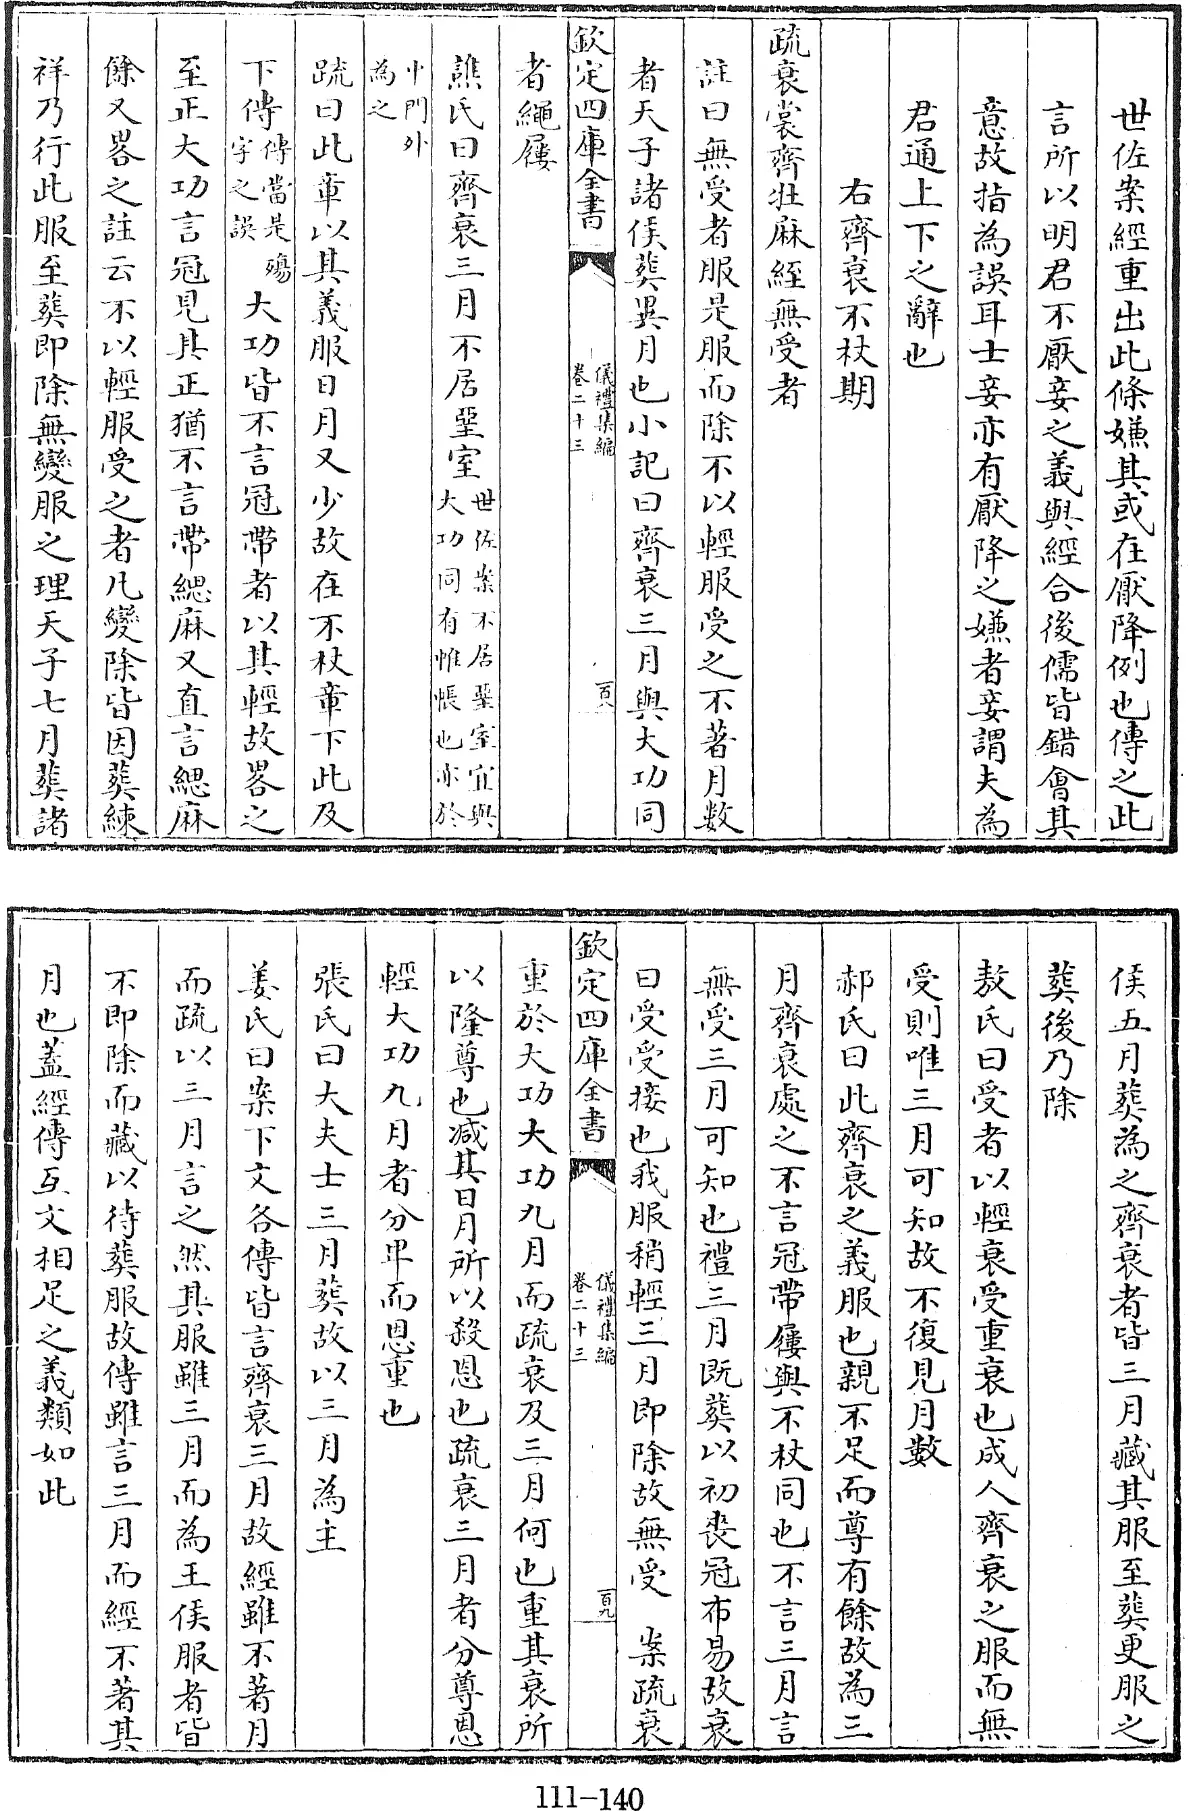 世佐案經重出此條嫌其或在厭降例也傳之此
言所以明君不厭妾之義與經合後儒皆錯會其
意故指為誤耳士妾亦有厭降之嫌者妾謂夫為
君通上下之辭也
右齊衰不杖期
疏衰裳齊牡麻絰無受者
註曰無受者服是服而除不以輕服受之不著月數
者天子諸侯葬異月也小記曰齊衰三月與大功同
欽定四庫全書
儀禮集編
卷二十三
百八
者繩屨
譙氏曰齊衰三月不居堊室世佐案不居堊室宜與
大功同有帷帳也亦於
中門外
為之
疏曰此章以其義服日月又少故在不杖章下此及
下傳傳當是殤
字之誤大功皆不言冠帶者以其輕故畧之
至正大功言冠見其正猶不言帶緦麻又直言緦麻
餘又畧之註云不以輕服受之者凡變除皆因葬練
祥乃行此服至葬即除無變服之理天子七月葬諸
侯五月葬為之齊衰者皆三月藏其服至葬更服之
葬後乃除
敖氏曰受者以輕衰受重衰也成人齊衰之服而無
受則唯三月可知故不復見月數
郝氏曰此齊衰之義服也親不足而尊有餘故為三
月齊衰處之不言冠帶屨與不杖同也不言三月言
無受三月可知也禮三月既葬以初喪冠布易故衰
曰受受接也我服稍輕三月即除故無受　案疏衰
欽定四庫全書
儀禮集編
卷二十三
百九
重於大功大功九月而疏衰及三月何也重其衰所
以隆尊也減其日月所以殺恩也疏衰三月者分尊恩
輕大功九月者分卑而恩重也
張氏曰大夫士三月葬故以三月為主
姜氏曰案下文各傳皆言齊衰三月故經雖不著月
而疏以三月言之然其服雖三月而為王侯服者皆
不即除而藏以待葬服故傳雖言三月而經不著其
月也蓋經傳互文相足之義類如此
111-140